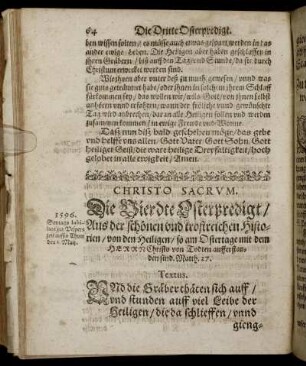 64 Die Dritte Osterpredigt.
ben wissen sollen / es müsse auch etwas gespart werden in das
ander ewige leben. Die Heiligen aber haben geschlaffen in
ihren Gräbern / biß auff den Tag vnd Stunde / da sie durch
Christum erwecket worden sind.
Wie
ihnen
auffkommen / das wollen wir / wils Gott / von ihnen selbst
anhören vnd erfahren / wann der fröliche vnd gewünschte
Tag wird anbrechen / daran alle Heiligen sollen vnd werden
zusammen kommen / in ewige Freud vnd Wonne.
Daß nun diß bald geschehen möge / das gebe
vnd helffe vns allen / Gott Vater / Gott Sohn / Gott
heiliger Geist / die ware heilige Dreyfaltigkeit / hoch
gelobet in alle ewigkeit / Amen.
CHRISTO SACRVM.
1596.
Die Vierdte Osterpredigt /
Aus der schönen vnd trostreichen Histo-
rien / von den Heiligen / so am Ostertage mit dem
HERRN Christo von Todten aufferstan-
den sind. Matth. 27.
Textus.
VNd die Gräber thäten sich auff /
vnd stunden auff viel Leibe der
Heiligen / die da schlieffen / vnd
gieng-